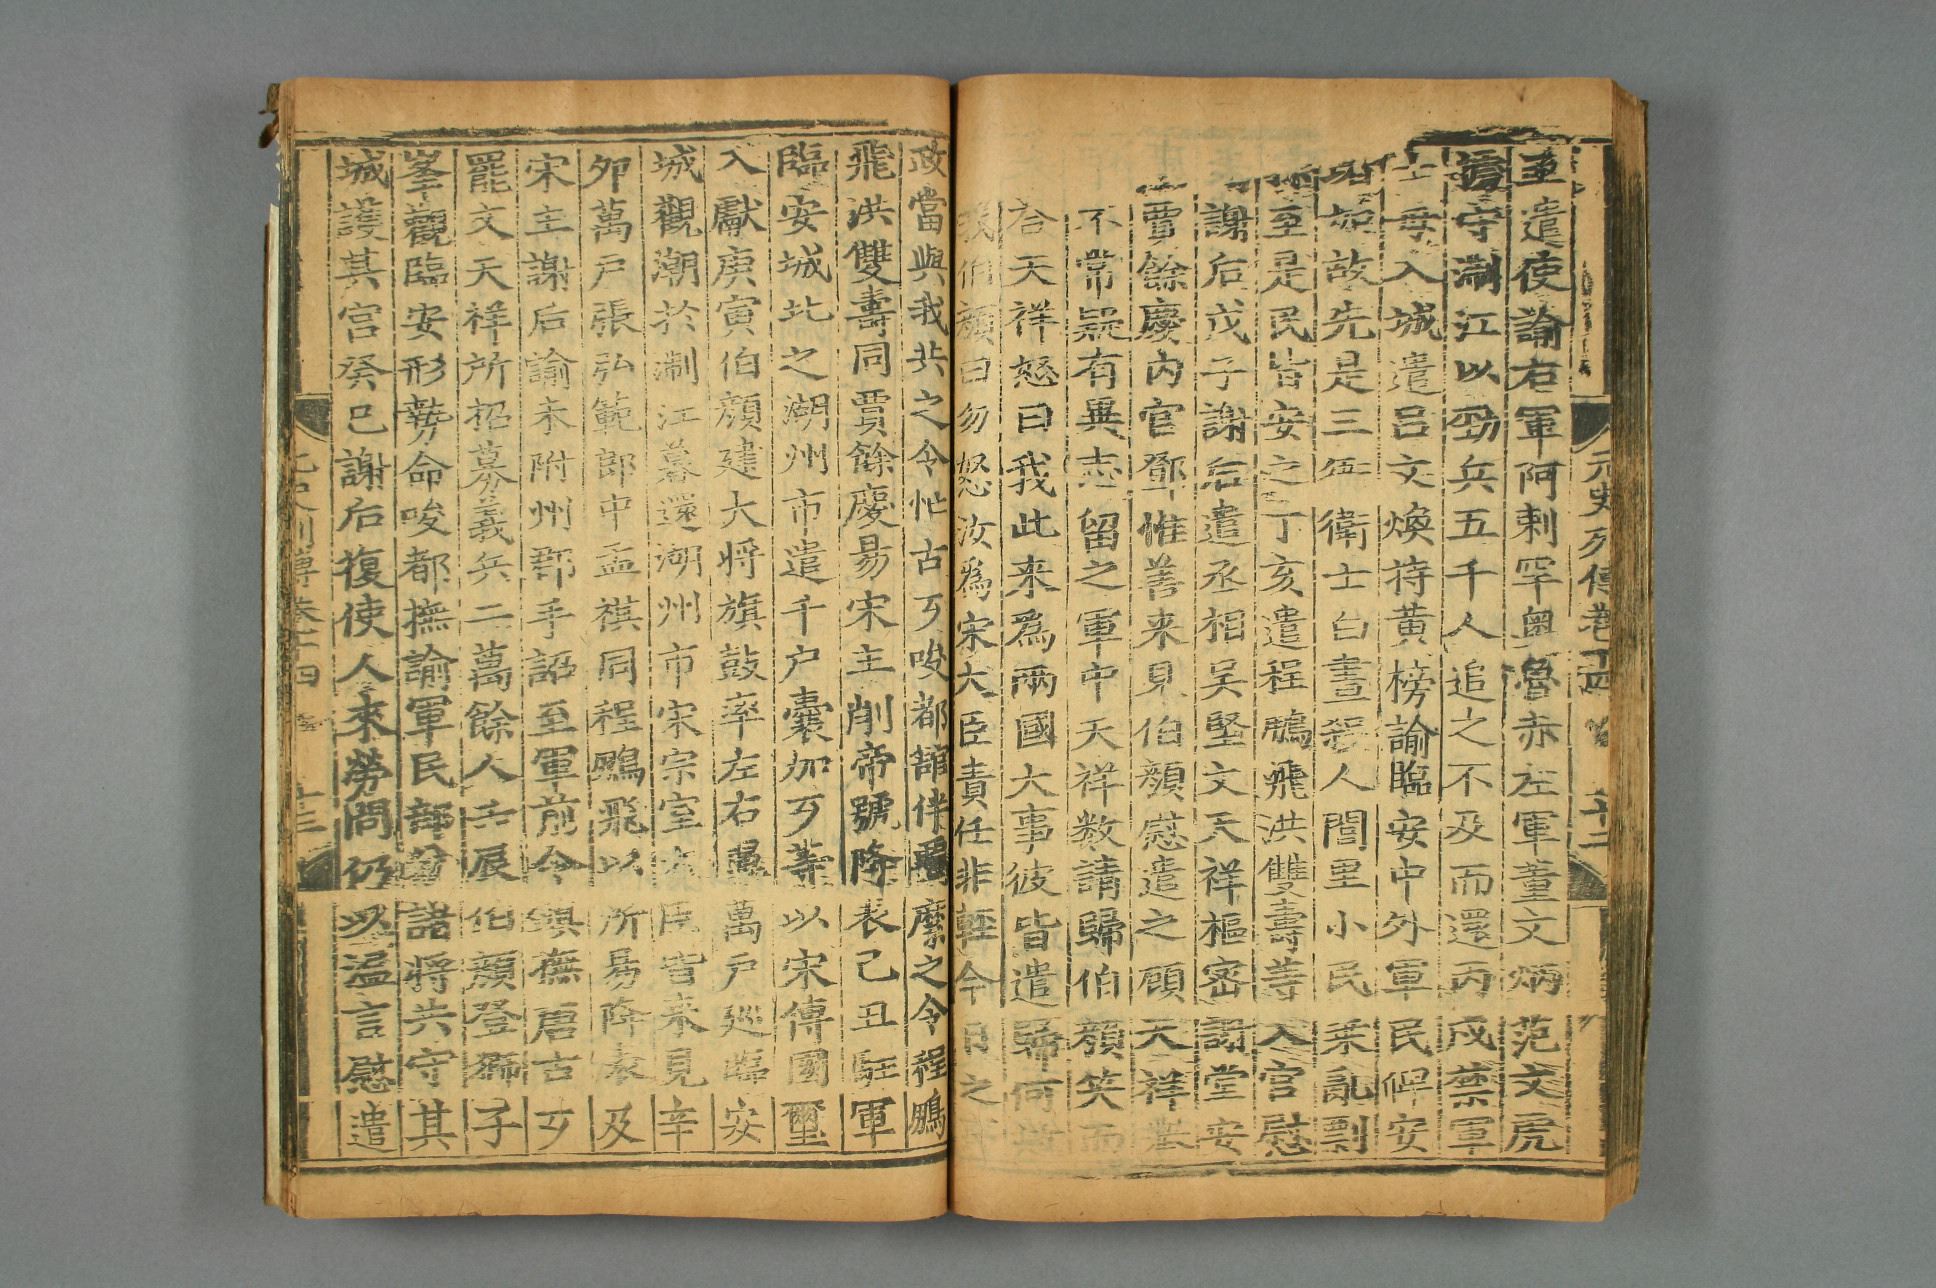 元史列傳卷十四
至遣使諭右軍阿剌罕奧魯赤左軍董文炳范文虎
守淛江以勁兵五千人追之不及而還丙戌禁軍
士毋入城遣呂文煥持黃榜諭臨安中外軍民俾安
如故先是三衙衛士白晝殺人閭里小民乘亂剽
至是民皆安之丁亥遣程鵬飛洪雙壽等入宮慰
謝后戊子謝后遣丞相吳堅文天祥樞密謝堂安
賈餘慶內官鄧惟善來見伯顔慰遣之顧天祥舉
不常疑有異志留之軍中天祥数請歸伯顔笑而
荅天祥怒曰我此来爲兩國大事彼皆遣歸何故
我伯顔曰勿怒汝爲宋大臣責任非輕今日之事
政當與我共之令忙古歹唆都舘伴羈縻之令程鵬
飛洪雙壽同賈餘慶易宋主削帝號降表己丑駐軍
臨安城北之湖州市遣千户囊加歹等以宋傳國璽
入獻庚寅伯顔建大将旗鼓率左右翼萬戶廵臨安
城觀潮於淛江暮還湖州市宋宗室大臣皆来見辛
夘萬戶張弘範郎中孟祺同程鵬飛以所易降表及
宋主謝后諭未附州郡手詔至軍前令鎮撫唐古歹
罷文天祥所招募義兵二萬餘人壬辰伯顔登獅子
峯觀臨安形勢命唆都撫諭軍民部分諸將共守其
城護其宮癸巳謝后復使人來勞問仍以温言慰遣
元史列傳卷十四 十三